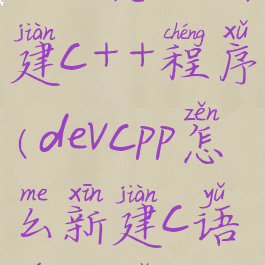 jiàn chéng xǔ
建C++程序
zěn
(devcpp怎
me xīn jiàn yǔ
么新建C语